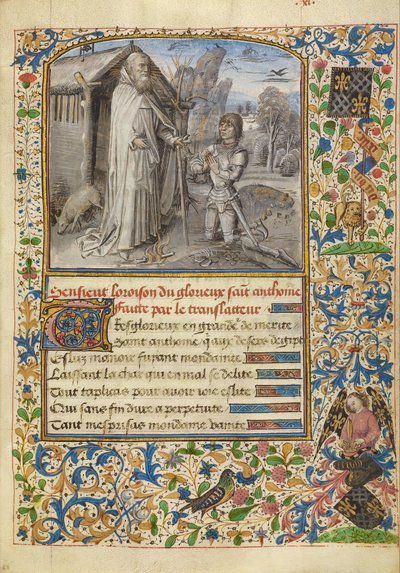 xl.
Sensieut loroison du glorieux saint anthoine
Faitte par le translatteur
Tresglorieux en grande de merite
Saint anthoine q̃ aux desers degipte
Esluz manoir fuyant mondanite
Laissant la char qui en mal se delite
Tout tapliquas pour auoir ioie eslite
Qui sans fin dure a perpetuite
Tant mesprisas mondaine vanite